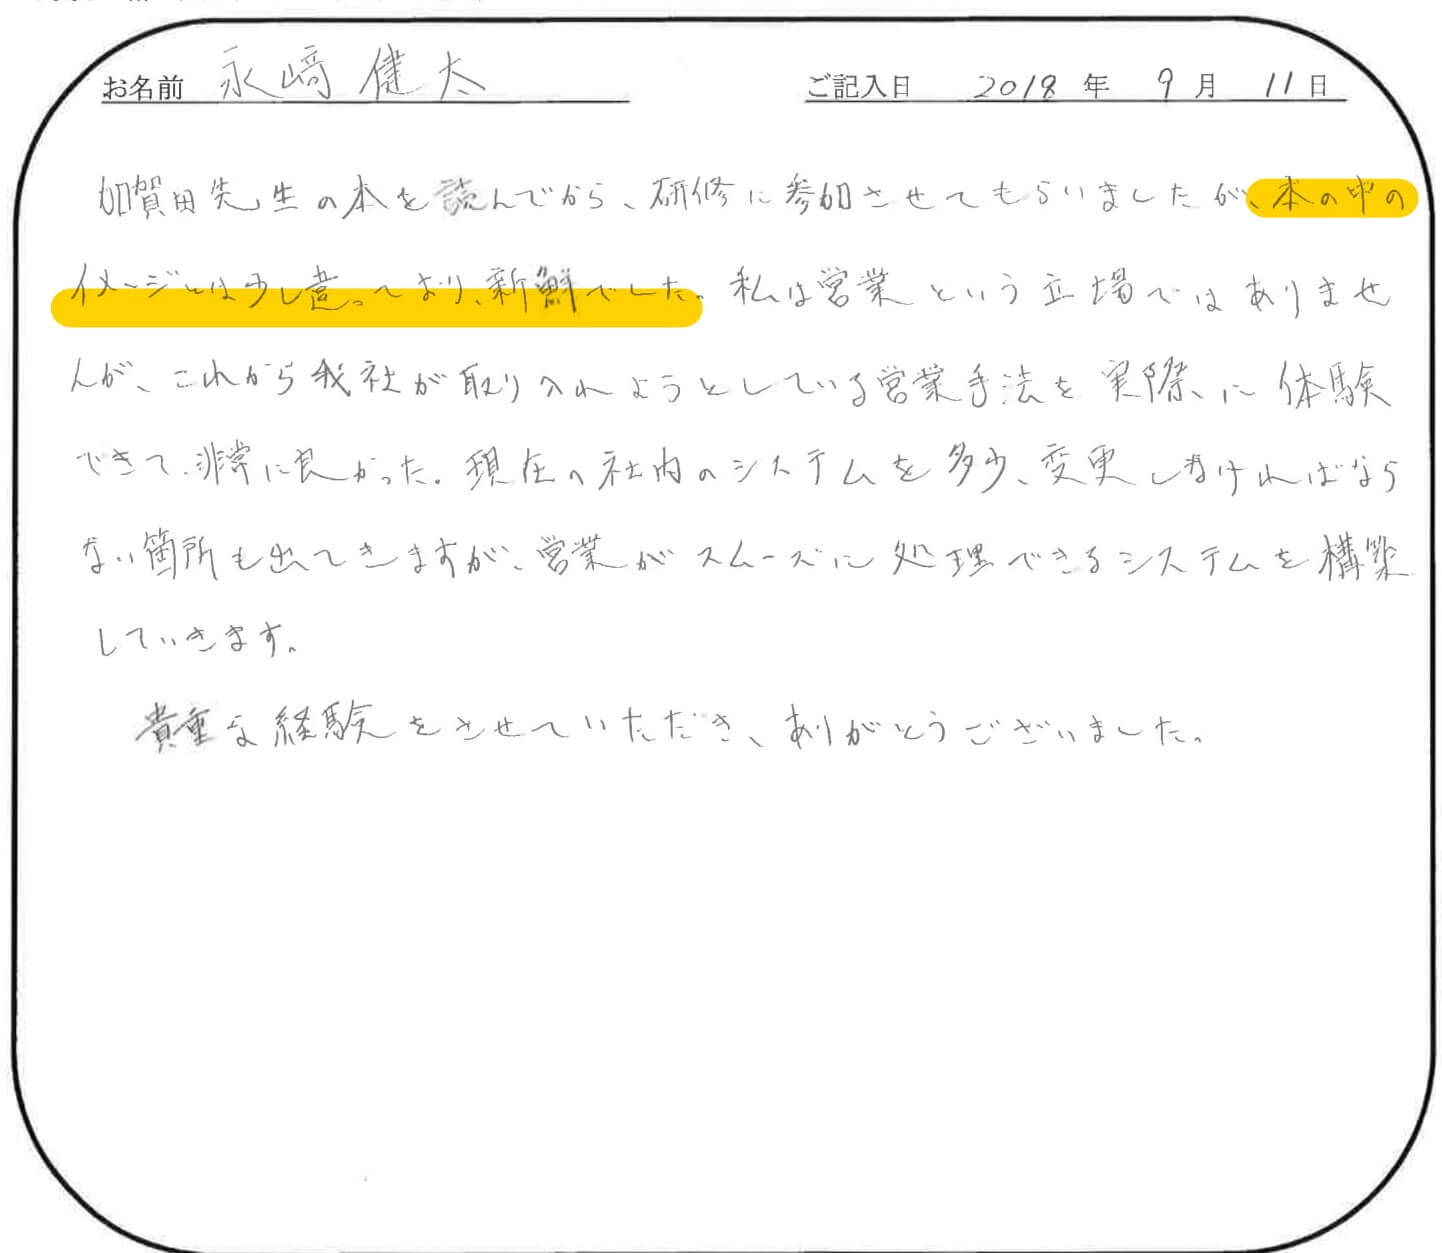 お名前 永﨑 健太 ご記入日 2018 年 9 月 11 日
加賀田先生の本を読んでから、研修に参加させてもらいましたが、本の中の
イメージとは少し違っており、新鮮でした。私は営業という立場ではありませ
んが、これから我社が取り入れようとしている営業手法を実際に体験
できて、非常に良かった。現在の社内のシステムを多少、変更しなければなら
ない箇所も出てきますが、営業がスムーズに処理できるシステムを構築
していきます。
貴重な経験をさせていただき、ありがとうございました。